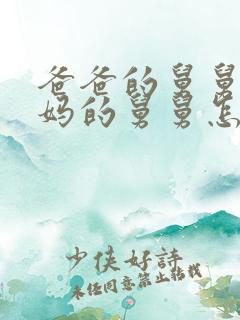 爸爸的舅舅
妈的舅舅怎
少侠好诗
未经同意禁止转载